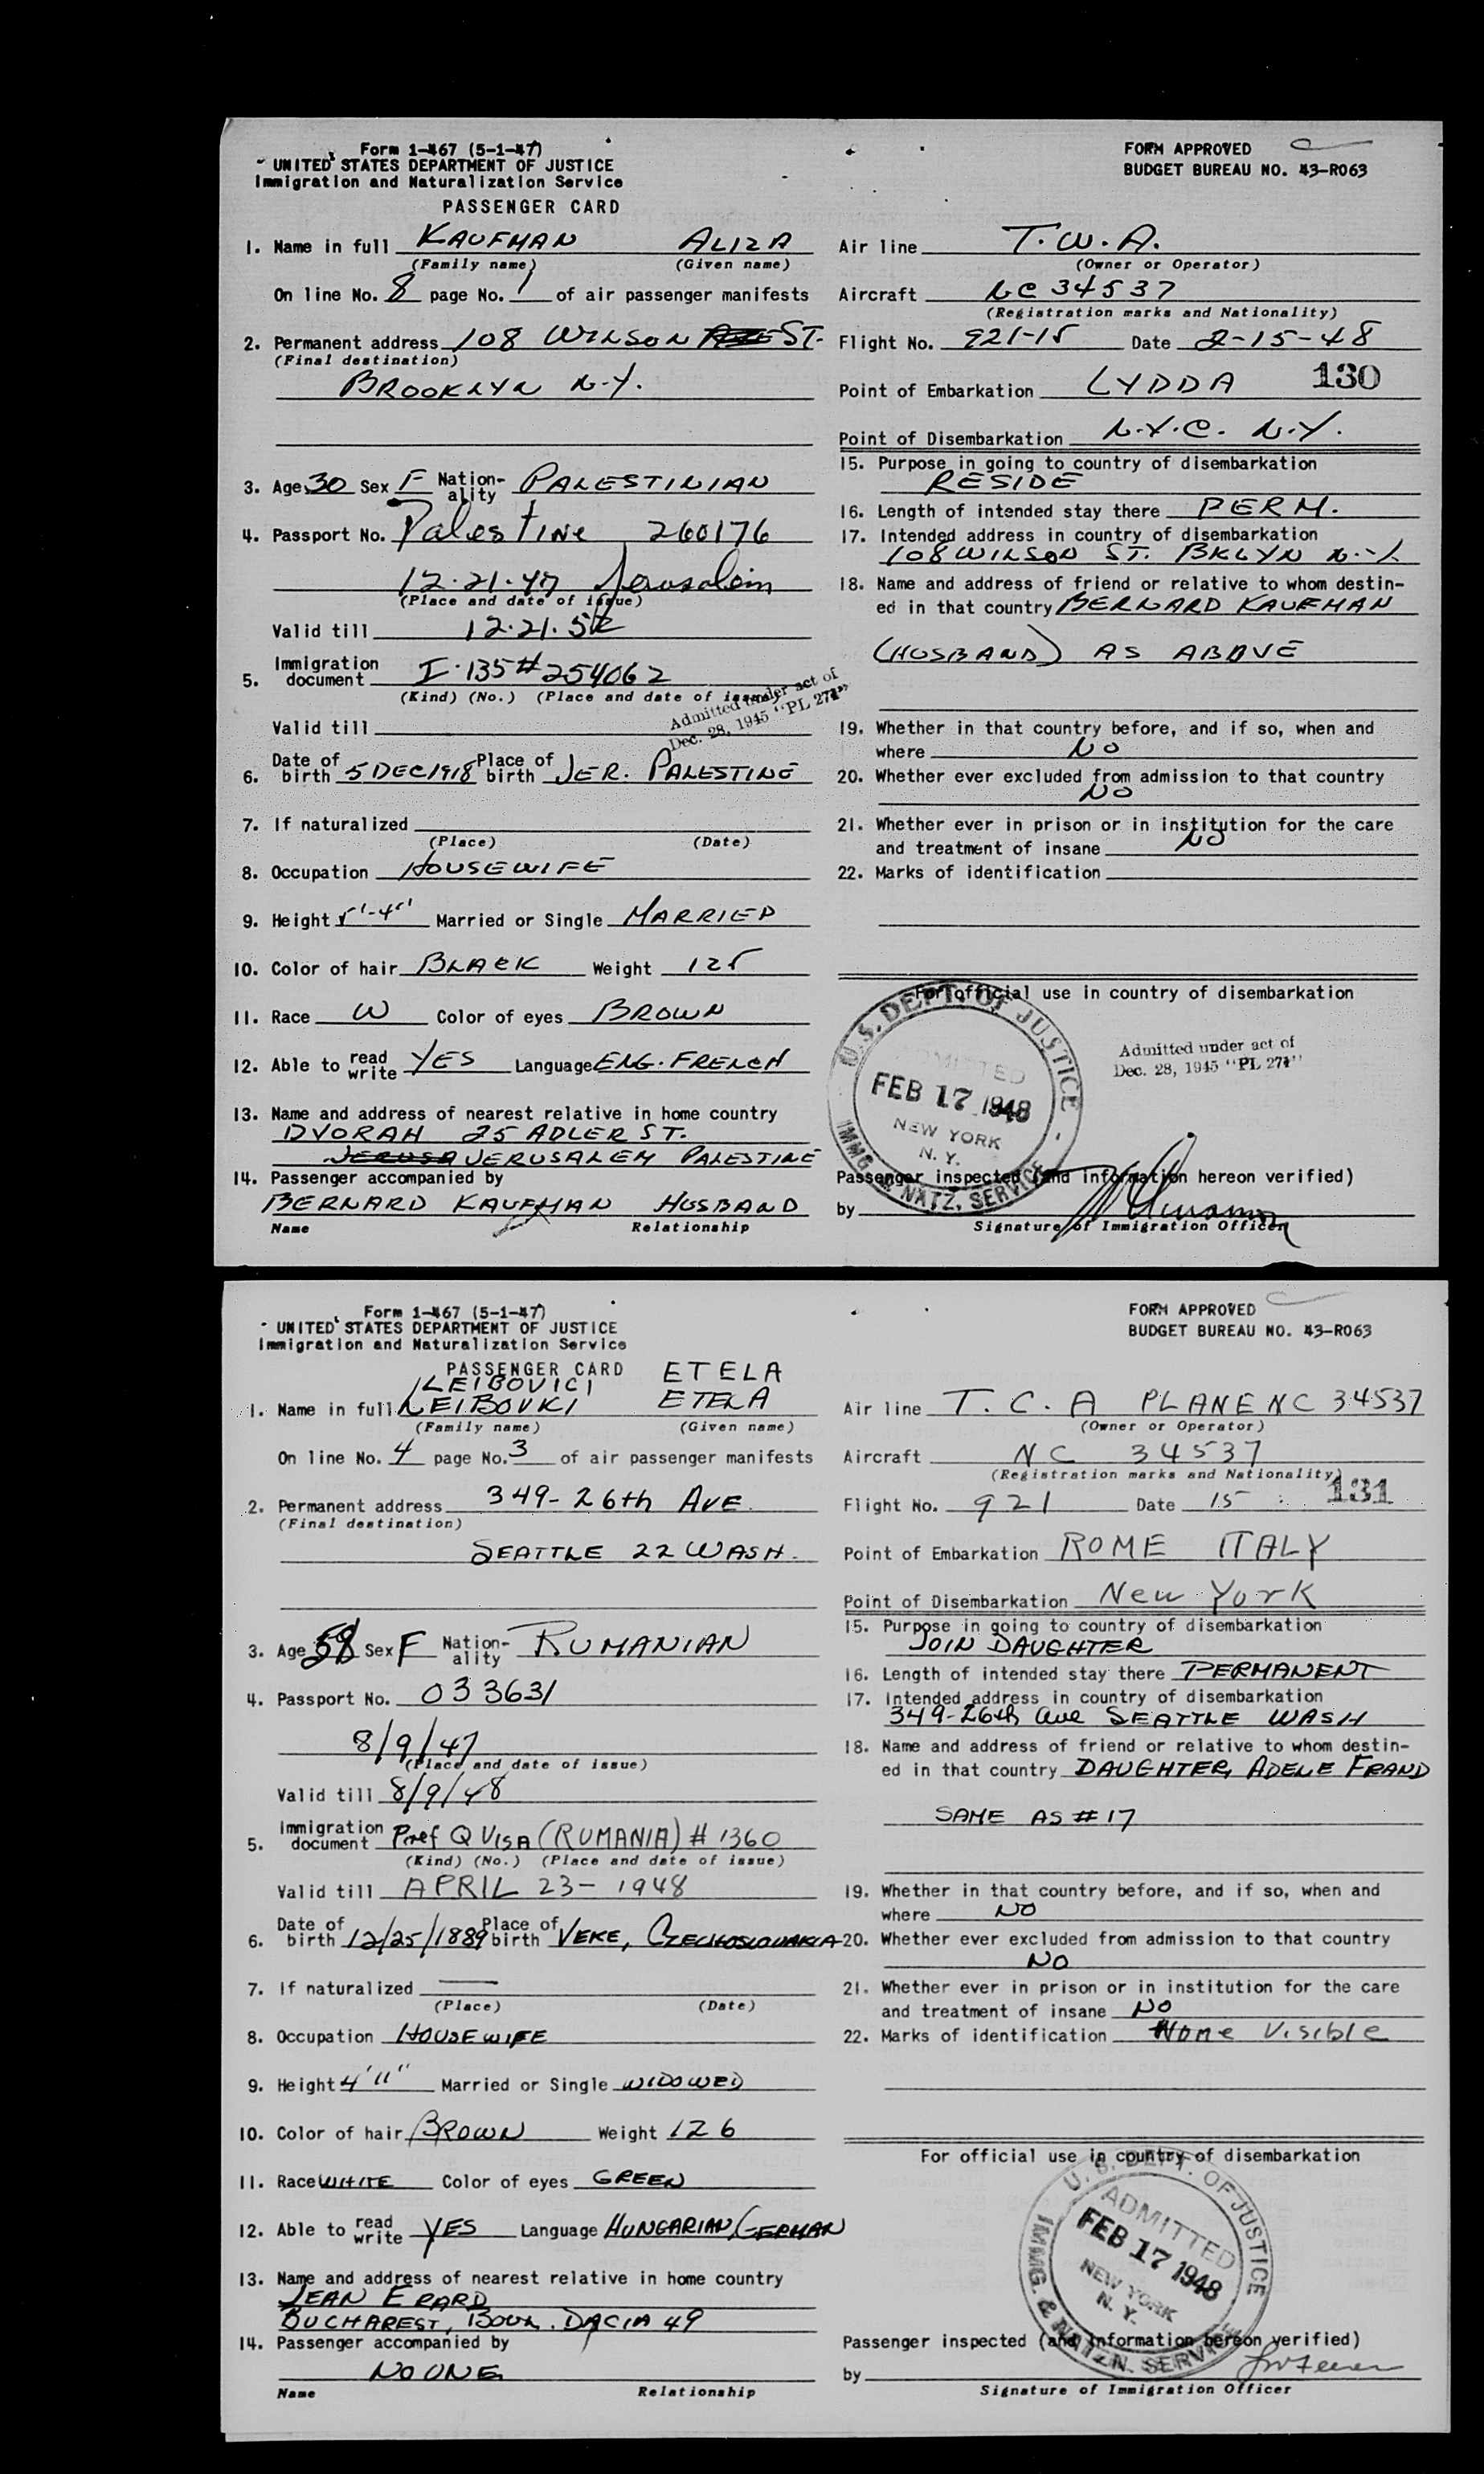 Form 1-467 (5-1-47)
UNITED STATES DEPARTMENT OF JUSTICE
Immigration and Naturalization Service
PASSENGER CARD
FORM APPROVED
BUDGET BUREAU NO. 43-R063
1. Name in full KAUFMAN ALIZA
(Family name) (Given name)
On line No. 8 page No. 1 of air passenger manifests
2. Permanent address 108 WILSON ST.
(Final destination)
BROOKLYN N.Y.
3. Age 30 Sex F Nation-ality PALESTINIAN
4. Passport No. Palestine 260176
12.21.47 Jerusalem
(Place and date of issue)
Valid till 12.21.52
5. Immigration document I-135 # 254062
(Kind) (No.) (Place and date of issue)
Admitted under act of
Dec. 28, 1945 "PL 271"
Valid till
6. Date of birth 5 DEC 1918 Place of birth JER. PALESTINE
7. If naturalized
(Place) (Date)
8. Occupation HOUSEWIFE
9. Height 5'-4" Married or Single MARRIED
10. Color of hair BLACK Weight 125
11. Race W Color of eyes BROWN
12. Able to read write YES Language ENG. FRENCH
13. Name and address of nearest relative in home country
DVORAH 25 ADLER ST.
JERUSA JERUSALEM PALESTINE
14. Passenger accompanied by
BERNARD KAUFMAN HUSBAND
Name Relationship
Air line T.W.A.
(Owner or Operator)
Aircraft NC 34537
(Registration marks and Nationality)
Flight No. 921-15 Date 2-15-48
Point of Embarkation LYDDA 130
Point of Disembarkation N.Y.C. N.Y.
15. Purpose in going to country of disembarkation
RESIDE
16. Length of intended stay there PERM.
17. Intended address in country of disembarkation
108 WILSON ST. BKLYN N.Y.
18. Name and address of friend or relative to whom destin-
ed in that country BERNARD KAUFMAN
(HUSBAND) AS ABOVE
19. Whether in that country before, and if so, when and
where NO
20. Whether ever excluded from admission to that country
NO
21. Whether ever in prison or in institution for the care
and treatment of insane NO
22. Marks of identification
For official use in country of disembarkation
U.S. DEPT. OF JUSTICE
ADMITTED
FEB 17 1948
NEW YORK
N.Y.
IMMG. & NATZ. SERVICE
Admitted under act of
Dec. 28, 1945 "PL 271"
Passenger inspected (and information hereon verified)
by
Signature of Immigration Officer
Form 1-467 (5-1-47)
UNITED STATES DEPARTMENT OF JUSTICE
Immigration and Naturalization Service
PASSENGER CARD
FORM APPROVED
BUDGET BUREAU NO. 43-R063
LEIBOVICI ETELA
1. Name in full LEIBOVKI ETELA
(Family name) (Given name)
On line No. 4 page No. 3 of air passenger manifests
2. Permanent address 349-26th AVE.
(Final destination)
SEATTLE 22 WASH.
3. Age 58 Sex F Nation-ality RUMANIAN
4. Passport No. 033631
8/9/47
(Place and date of issue)
Valid till 8/9/48
5. Immigration document Pref Q VISA (RUMANIA) # 1360
(Kind) (No.) (Place and date of issue)
Valid till APRIL 23-1948
6. Date of birth 12/25/1889 Place of birth VEKE, CZECHOSLOVAKIA
7. If naturalized
(Place) (Date)
8. Occupation HOUSEWIFE
9. Height 4'11" Married or Single WIDOWED
10. Color of hair BROWN Weight 126
11. Race WHITE Color of eyes GREEN
12. Able to read write YES Language HUNGARIAN/GERMAN
13. Name and address of nearest relative in home country
JEAN ERARD
BUCHAREST, BOUL. DACIA 49
14. Passenger accompanied by
NO ONE
Name Relationship
Air line T.C.A PLANE NC 34537
(Owner or Operator)
Aircraft NC 34537
(Registration marks and Nationality)
131
Flight No. 921 Date 15
Point of Embarkation ROME ITALY
Point of Disembarkation New York
15. Purpose in going to country of disembarkation
JOIN DAUGHTER
16. Length of intended stay there PERMANENT
17. Intended address in country of disembarkation
349-26th Ave SEATTLE WASH
18. Name and address of friend or relative to whom destin-
ed in that country DAUGHTER, ADELE FRAND
SAME AS #17
19. Whether in that country before, and if so, when and
where NO
20. Whether ever excluded from admission to that country
NO
21. Whether ever in prison or in institution for the care
and treatment of insane NO
22. Marks of identification None Visible
For official use in country of disembarkation
U.S. DEPT. OF JUSTICE
ADMITTED
FEB 17 1948
NEW YORK
N.Y.
IMMG. & NATZN. SERVICE
Passenger inspected (and information hereon verified)
by
Signature of Immigration Officer